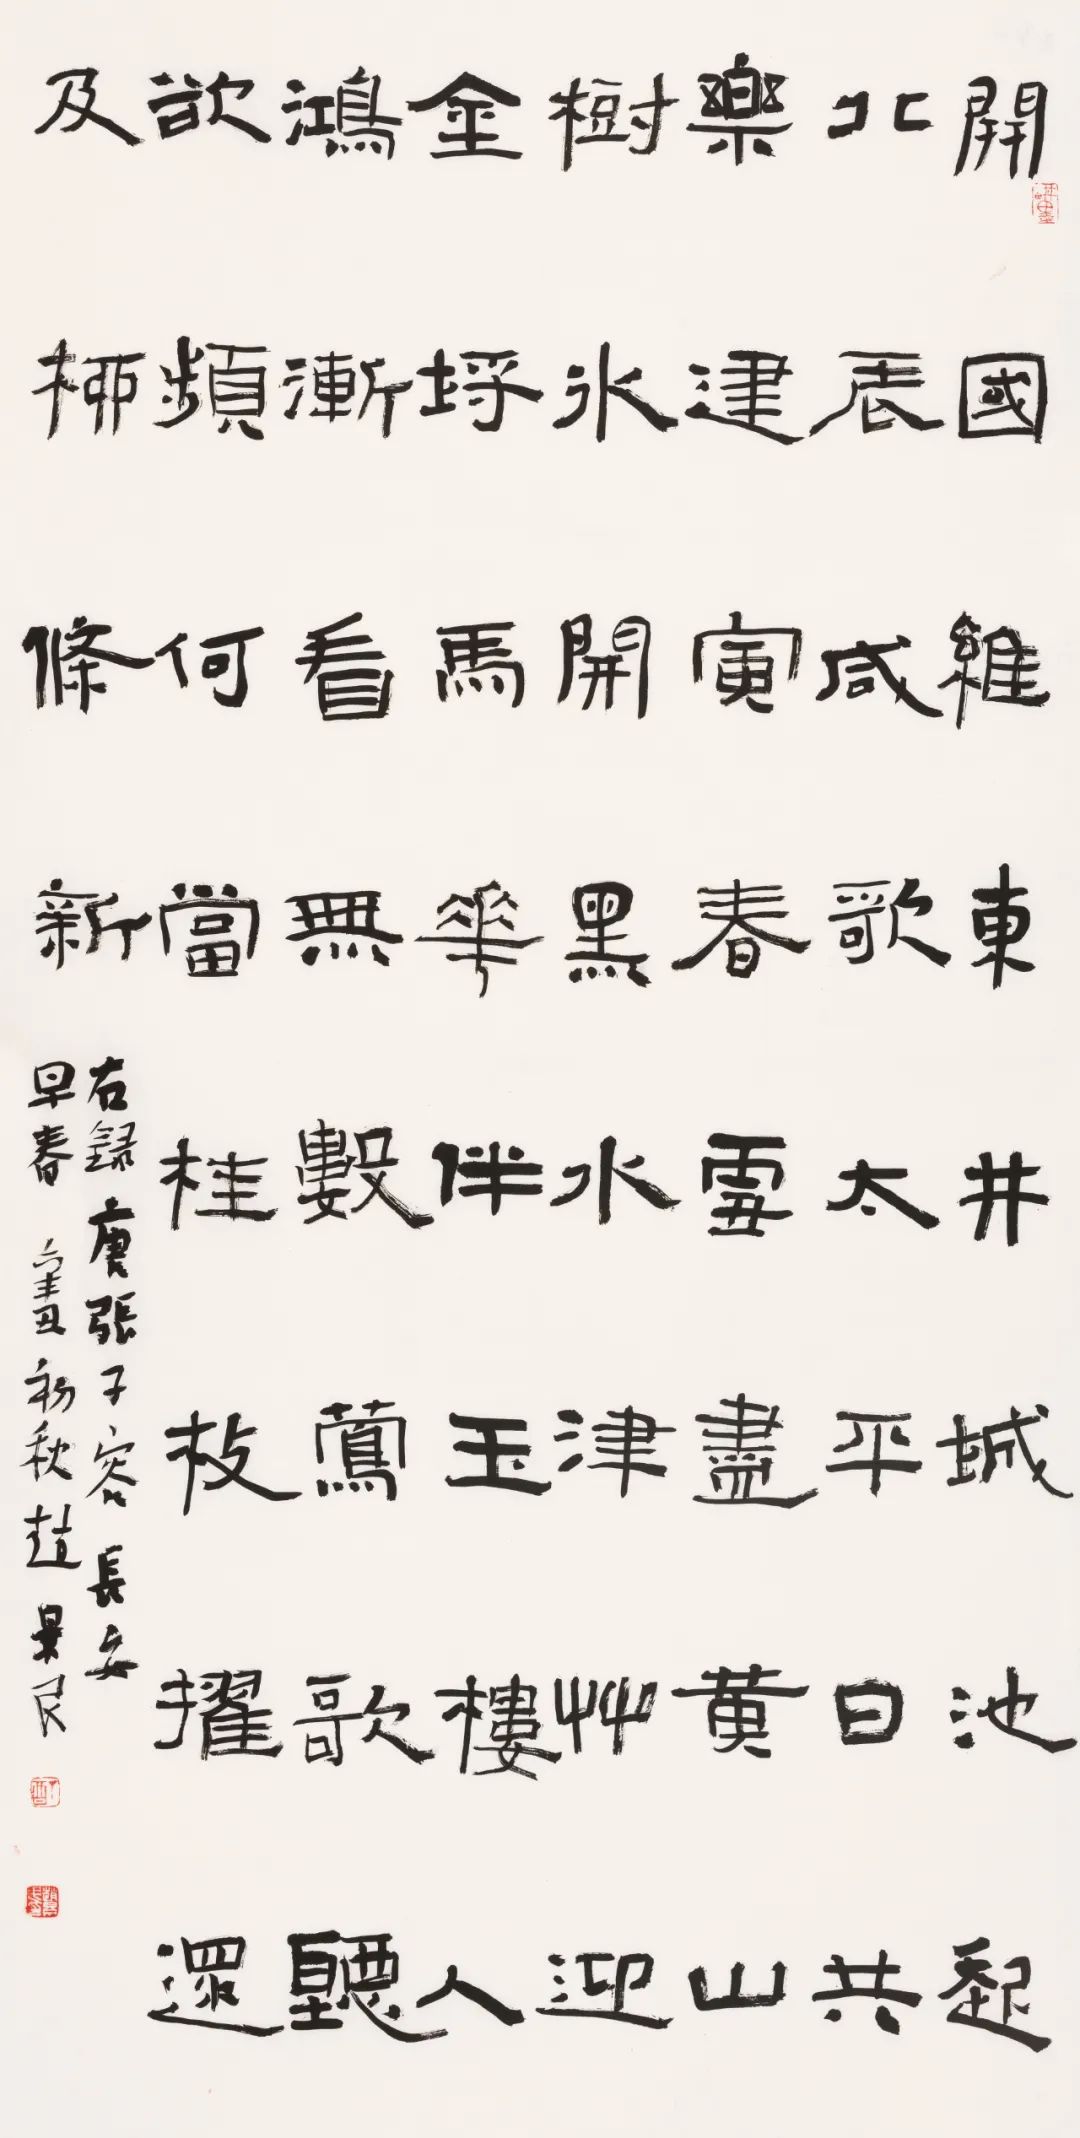 開國維東井城池起
北辰咸歌太平日共
樂建寅春雪盡黄山
樹冰開黑水津艸迎
金埒馬華伴玉樓人
鴻漸看無數鶯歌聽
欲頻何當桂枝擢還
及柳條新
右録唐張子容長安
早春 辛丑初秋趙